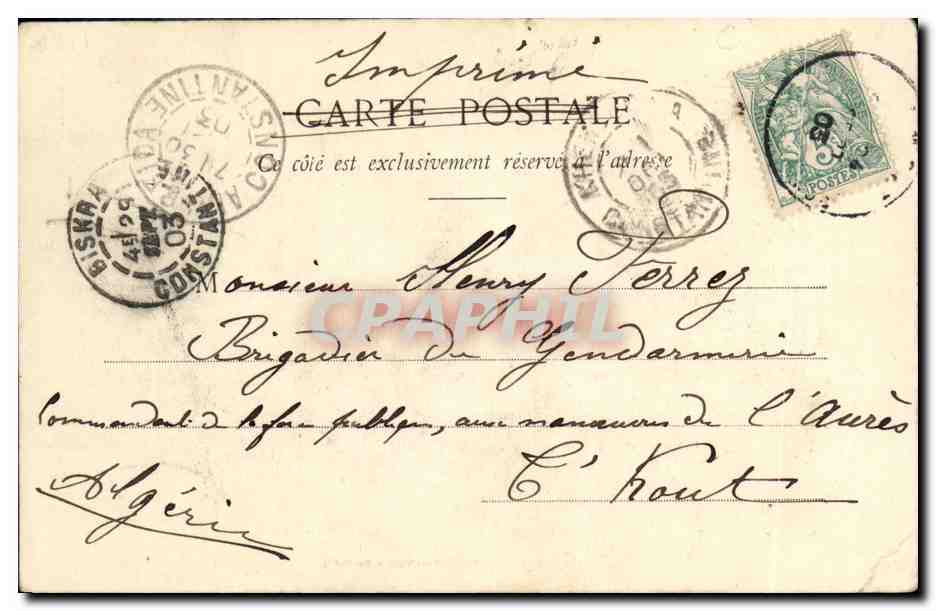 Imprimé
CARTE POSTALE
Ce côté est exclusivement réservé à l'adresse
CONSTANTINE
BISKRA
4E 29
SEPT
03
CONSTANTINE
CONSTANTINE
5
POSTES
03
Monsieur Henry Ferrez
CPAPHIL
Brigadier de Gendarmerie
Commandant de la force publique, aux manœuvres de l'Aurès
T'Kout
Algérie